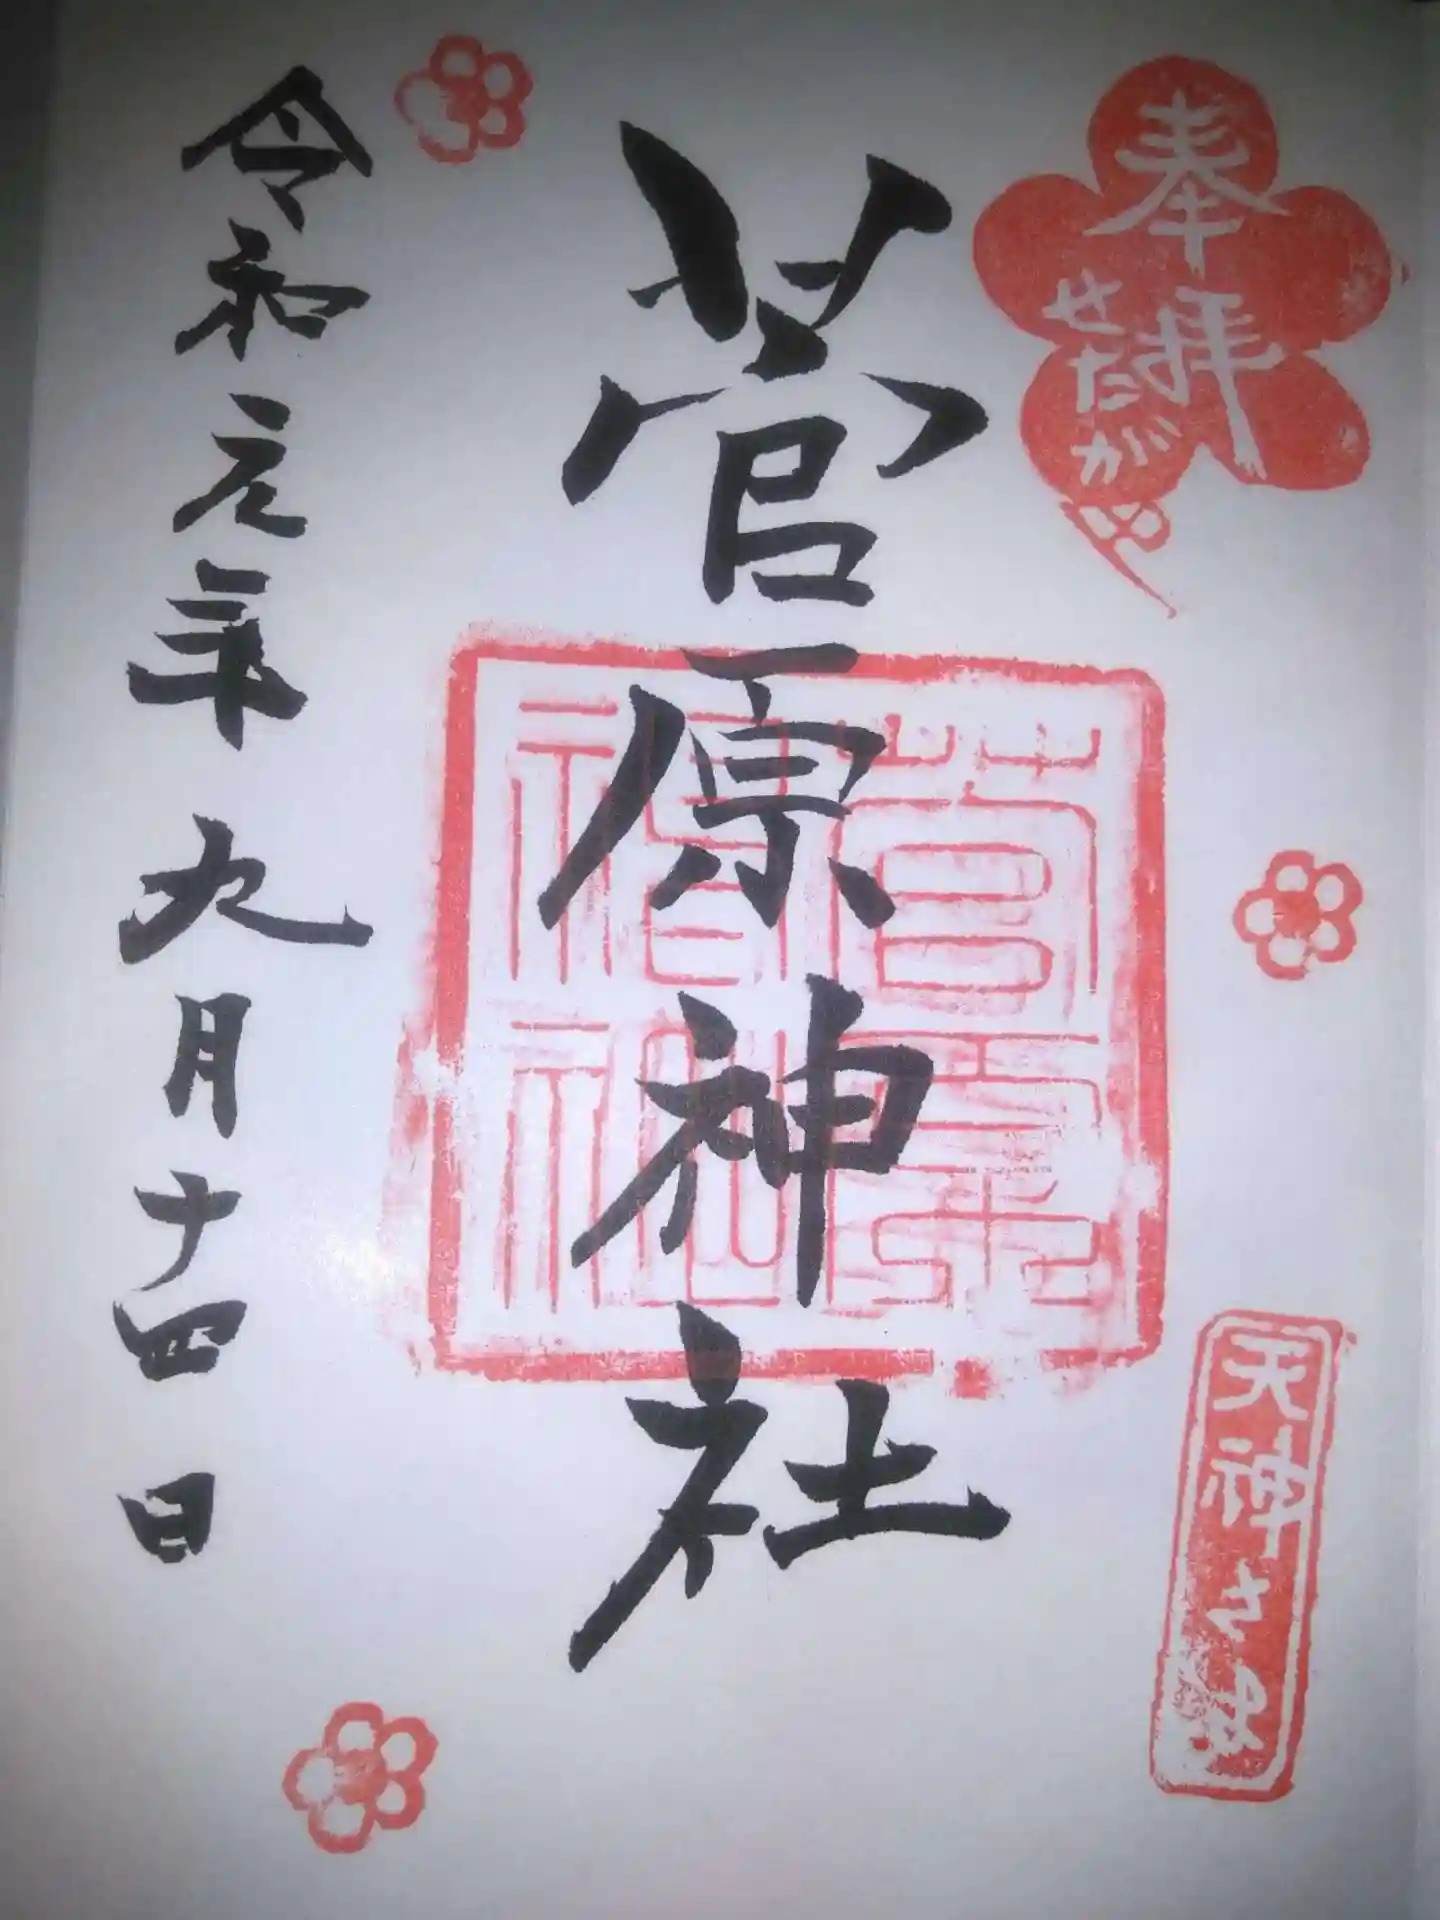 奉拝
せたがや
天神さま
菅原神社
菅原
令和元年九月十四日